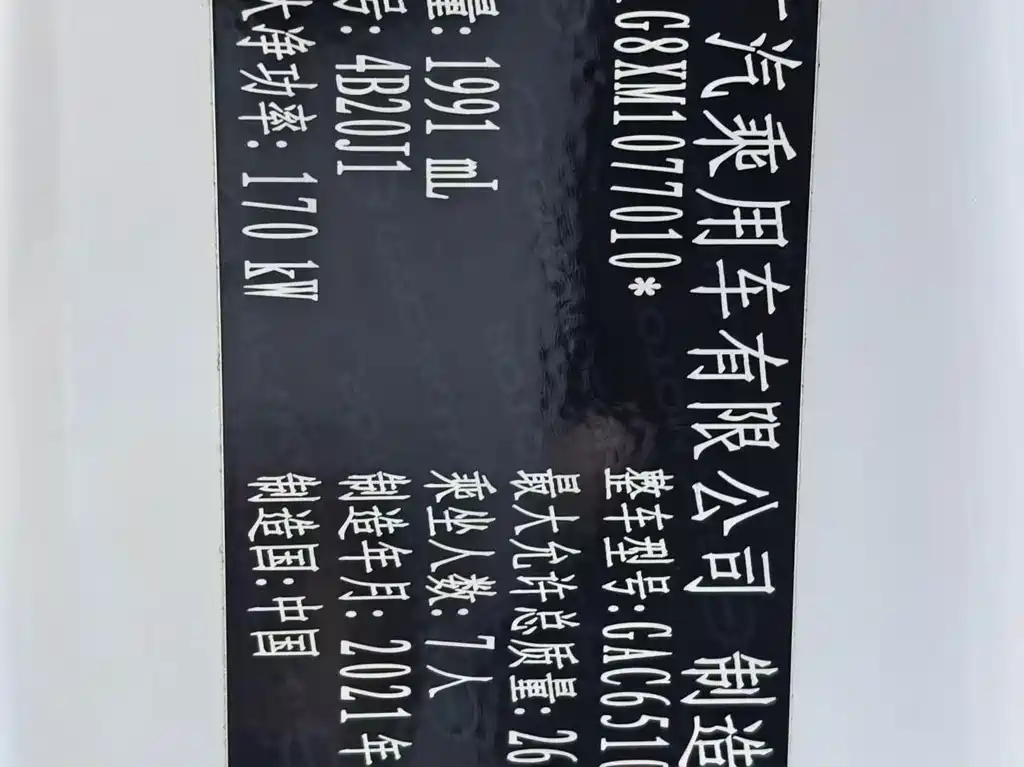 汽乘用车有限公司 制造
G8XM1077010* 整车型号:GAC651
最大允许总质量:26
量:1991 mL 乘坐人数:7人
号:4B20J1 制造年月:2021年
大净功率:170 kW 制造国:中国